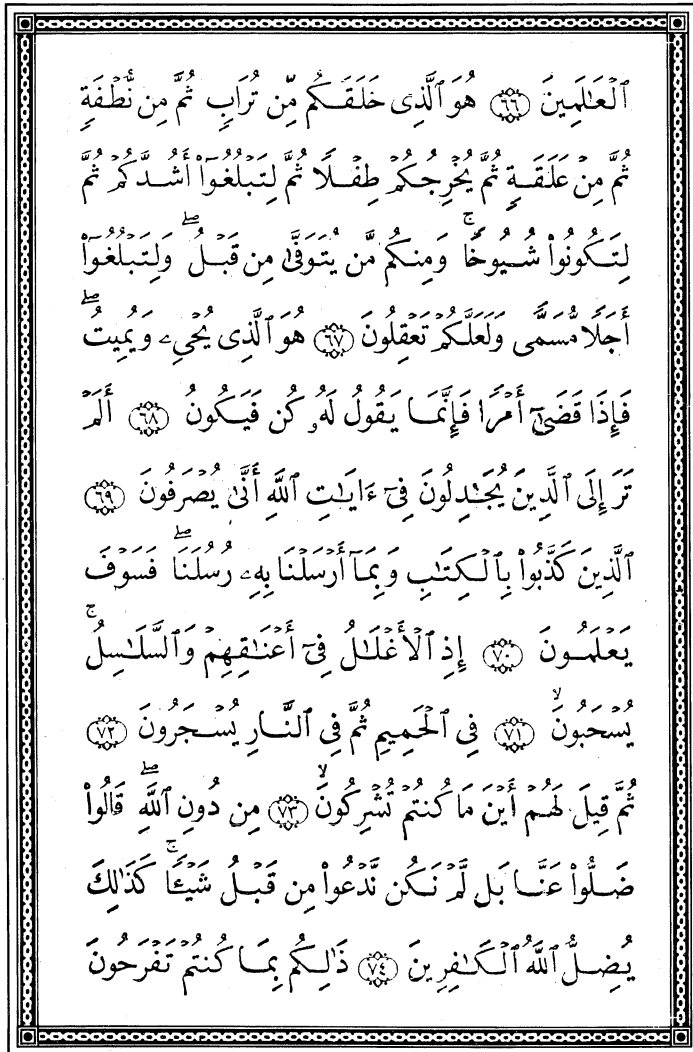 ٱلۡعَـٰلَمِينَ ٦٦ هُوَ ٱلَّذِى خَلَقَكُم مِّن تُرَابٖ ثُمَّ مِن نُّطۡفَةٖ
ثُمَّ مِنۡ عَلَقَةٖ ثُمَّ يُخۡرِجُكُمۡ طِفۡلٗا ثُمَّ لِتَبۡلُغُوٓاْ أَشُدَّكُمۡ ثُمَّ
لِتَكُونُواْ شُيُوخٗاۚ وَمِنكُم مَّن يُتَوَفَّىٰ مِن قَبۡلُۖ وَلِتَبۡلُغُوٓاْ
أَجَلٗا مُّسَمّٗى وَلَعَلَّكُمۡ تَعۡقِلُونَ ٦٧ هُوَ ٱلَّذِى يُحۡىِۦ وَيُمِيتُۖ
فَإِذَا قَضَىٰٓ أَمۡرٗا فَإِنَّمَا يَقُولُ لَهُۥ كُن فَيَكُونُ ٦٨ أَلَمۡ
تَرَ إِلَى ٱلَّذِينَ يُجَـٰدِلُونَ فِىٓ ءَايَـٰتِ ٱللَّهِ أَنَّىٰ يُصۡرَفُونَ ٦٩
ٱلَّذِينَ كَذَّبُواْ بِٱلۡكِتَـٰبِ وَبِمَآ أَرۡسَلۡنَا بِهِۦ رُسُلَنَاۖ فَسَوۡفَ
يَعۡلَمُونَ ٧٠ إِذِ ٱلۡأَغۡلَـٰلُ فِىٓ أَعۡنَـٰقِهِمۡ وَٱلسَّلَـٰسِلُۚ
يُسۡحَبُونَۙ ٧١ فِى ٱلۡحَمِيمِ ثُمَّ فِى ٱلنَّارِ يُسۡجَرُونَ ٧٢
ثُمَّ قِيلَ لَهُمۡ أَيۡنَ مَا كُنتُمۡ تُشۡرِكُونَۙ ٧٣ مِن دُونِ ٱللَّهِۖ قَالُواْ
ضَلُّواْ عَنَّا بَل لَّمۡ نَكُن نَّدۡعُواْ مِن قَبۡلُ شَيۡـٔٗاۚ كَذَٰلِكَ
يُضِلُّ ٱللَّهُ ٱلۡكَـٰفِرِينَ ٧٤ ذَٰلِكُم بِمَا كُنتُمۡ تَفۡرَحُونَ